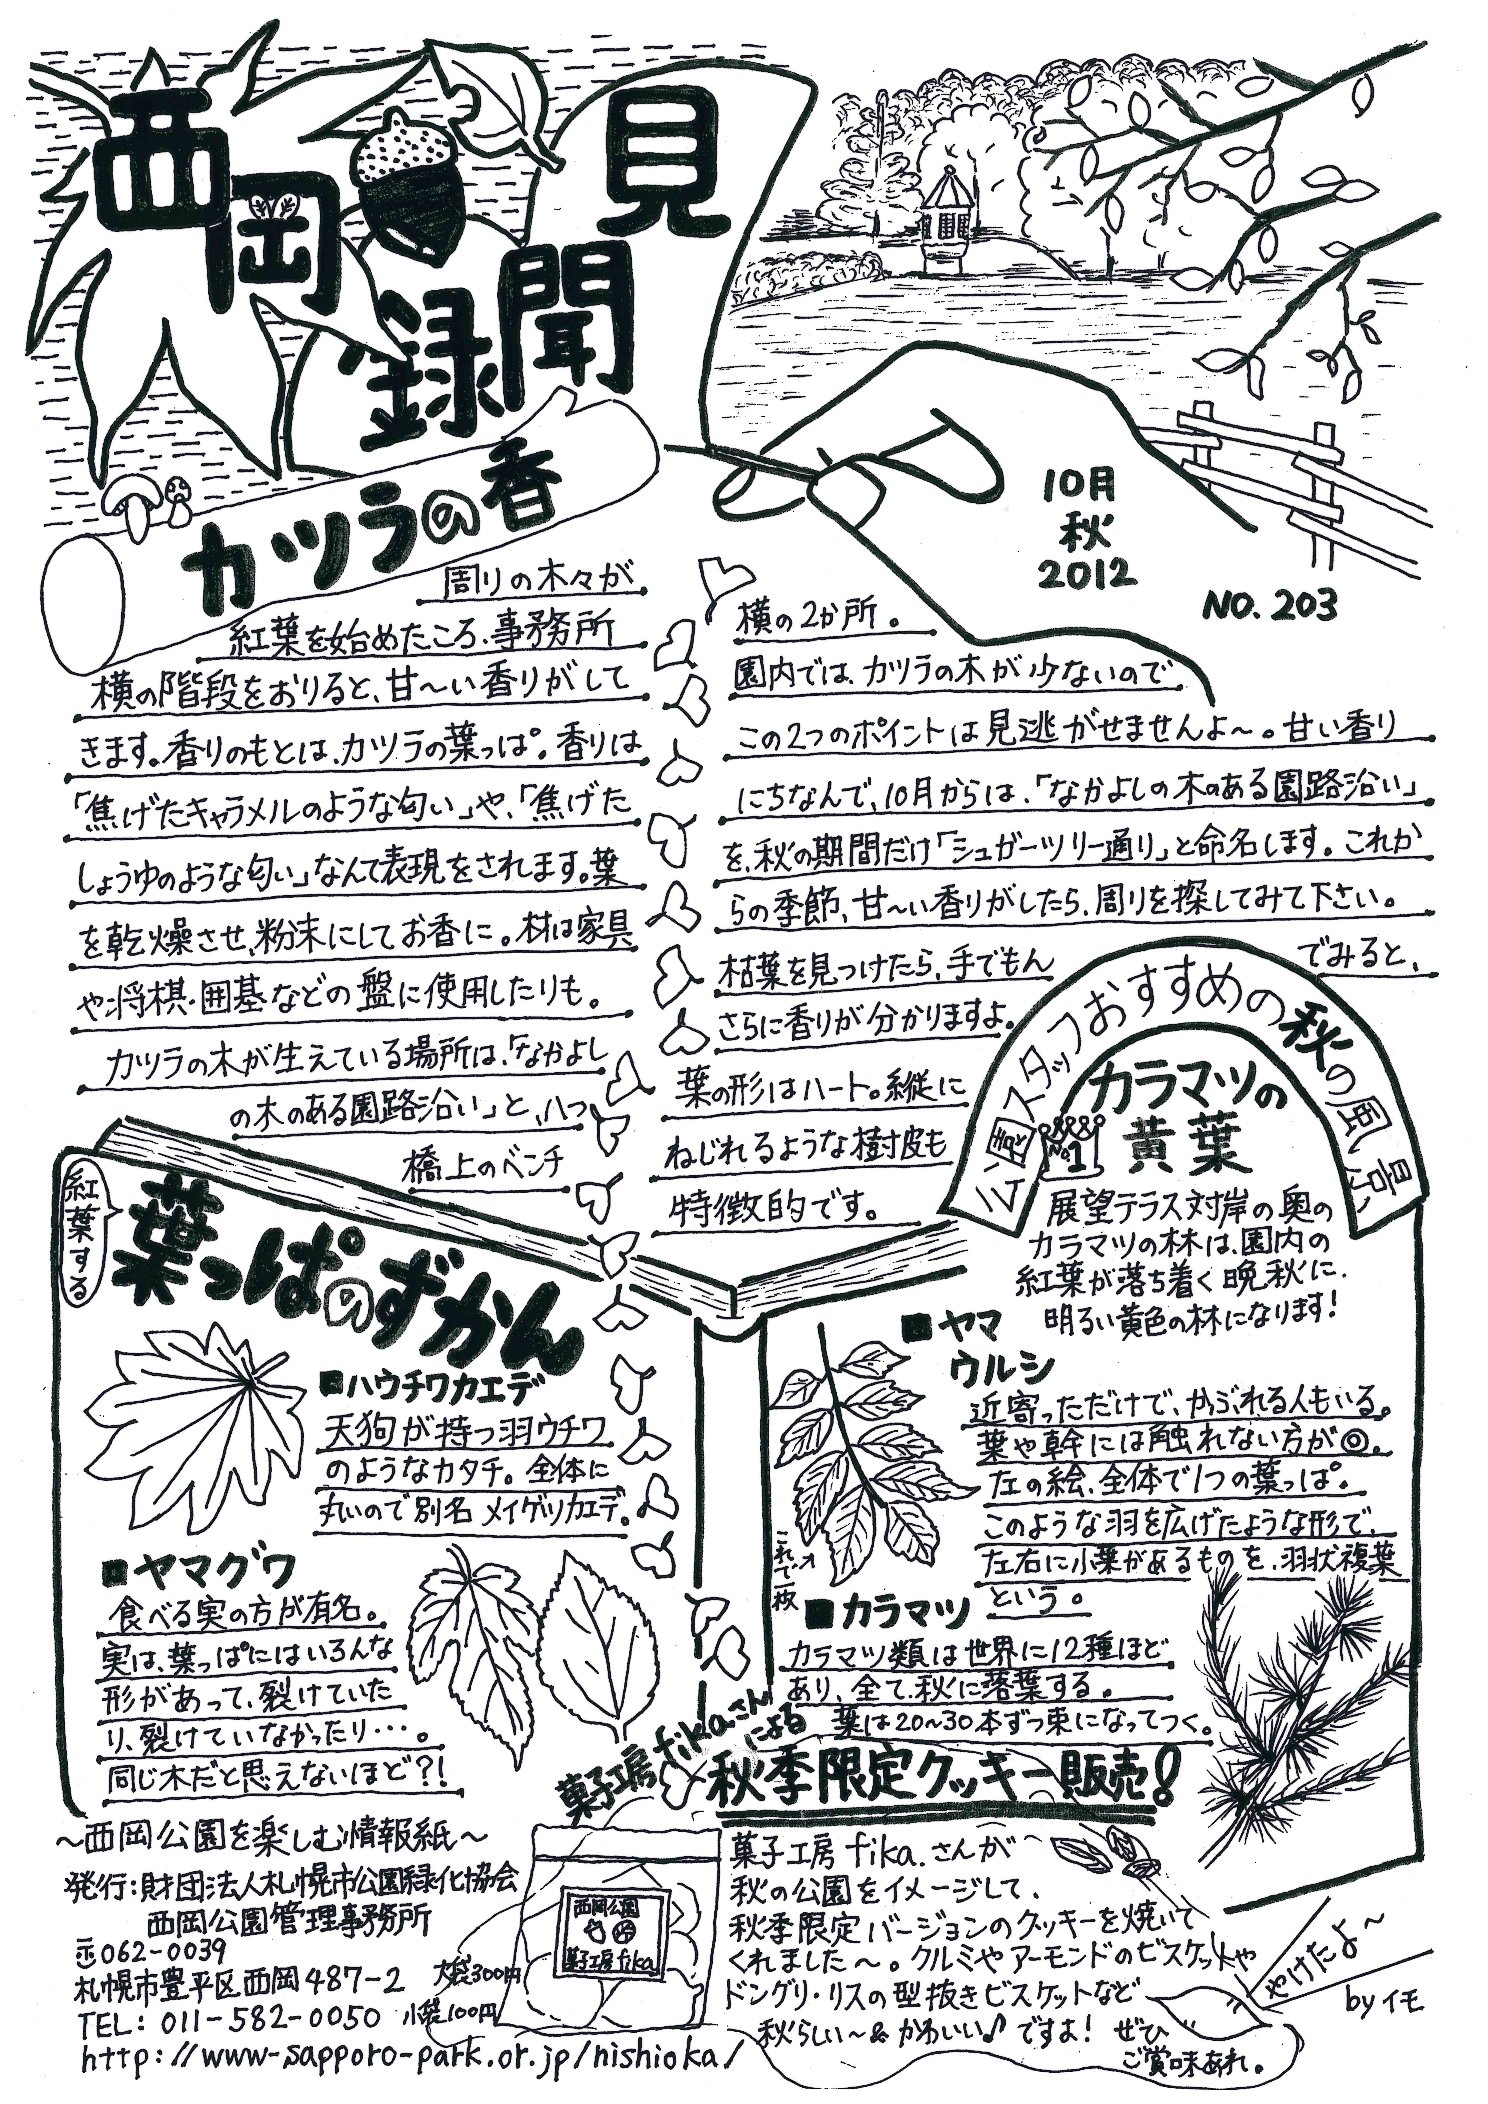 西岡見聞録
10月
秋
2012
NO. 203
カツラの香
周りの木々が
紅葉を始めたころ、事務所
横の階段をおりると、甘〜い香りがして
きます。香りのもとは、カツラの葉っぱ。香りは
「焦げたキャラメルのような匂い」や、「焦げた
しょうゆのような匂い」なんて表現をされます。葉
を乾燥させ、粉末にしてお香に。材は家具
や将棋・囲碁などの盤に使用したりも。
カツラの木が生えている場所は、「なかよし
の木のある園路沿い」と、八つ
橋上のベンチ
横の2か所。
園内では、カツラの木が少ないので
この2つのポイントは見逃がせませんよ〜。甘い香り
にちなんで、10月からは、「なかよしの木のある園路沿い」
を、秋の期間だけ「シュガーツリー通り」と命名します。これか
らの季節、甘〜い香りがしたら、周りを探してみて下さい。
枯葉を見つけたら、手でもん
でみると、
さらに香りが分かりますよ。
葉の形はハート。縦に
ねじれるような樹皮も
特徴的です。
公園スタッフおすすめの秋の風景
No.1
カラマツの
黄葉
展望テラス対岸の奥の
カラマツの林は、園内の
紅葉が落ち着く晩秋に、
明るい黄色の林になります!
紅葉する
葉っぱのずかん
■ハウチワカエデ
天狗が持つ羽ウチワ
のようなカタチ。全体に
丸いので別名 メイゲツカエデ。
■ヤマグワ
食べる実の方が有名。
実は、葉っぱにはいろんな
形があって、裂けていた
り、裂けていなかったり…。
同じ木だと思えないほど?!
■ヤマ
ウルシ
近寄っただけで、かぶれる人もいる。
葉や幹には触れない方が◎。
左の絵、全体で1つの葉っぱ。
このような羽を広げたような形で、
左右に小葉があるものを、羽状複葉
という。
これで一枚
■カラマツ
カラマツ類は世界に12種ほど
あり、全て秋に落葉する。
葉は20〜30本ずつ束になってつく。
菓子工房fika.さんによる
秋季限定クッキー販売!
菓子工房 fika.さんが
秋の公園をイメージして、
秋季限定バージョンのクッキーを焼いて
くれました〜。クルミやアーモンドのビスケットや
ドングリ・リスの型抜きビスケットなど
秋らしい〜&かわいい♪ですよ! ぜひ
ご賞味あれ。
やけたよ〜
by イモ
西岡公園
菓子工房fika
大袋300円
小袋100円
〜西岡公園を楽しむ情報紙〜
発行:財団法人札幌市公園緑化協会
西岡公園管理事務所
〒062-0039
札幌市豊平区西岡487-2
TEL: 011-582-0050
http://www-sapporo-park.or.jp/nishioka/